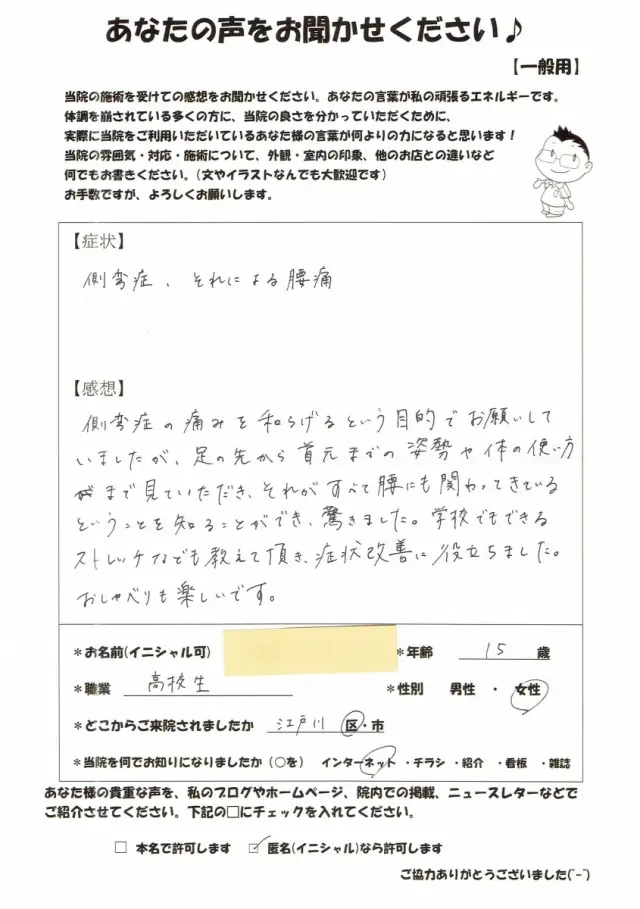 あなたの声をお聞かせください♪
【一般用】
当院の施術を受けての感想をお聞かせください。あなたの言葉が私の頑張るエネルギーです。
体調を崩されている多くの方に、当院の良さを分かっていただくために、
実際に当院をご利用いただいているあなた様の言葉が何よりの力になると思います！
当院の雰囲気・対応・施術について、外観・室内の印象、他のお店との違いなど
何でもお書きください。(文やイラストなんでも大歓迎です)
お手数ですが、よろしくお願いします。
【症状】
側弯症、それによる腰痛
【感想】
側弯症の痛みを和らげるという目的でお願いして
いましたが、足の先から首元までの姿勢や体の使い方
まで見ていただき、それがすべて腰にも関わってきている
ということを知ることができ、驚きました。学校でもできる
ストレッチなども教えて頂き、症状改善に役立ちました。
おしゃべりも楽しいです。
＊お名前(イニシャル可)
＊年齢 15 歳
＊職業 高校生
＊性別 男性 ・ 女性
＊どこからご来院されましたか 江戸川 区・市
＊当院を何でお知りになりましたか (○を) インターネット ・チラシ ・紹介 ・看板 ・雑誌
あなた様の貴重な声を、私のブログやホームページ、院内での掲載、ニュースレターなどで
ご紹介させてください。下記の□にチェックを入れてください。
□ 本名で許可します ☑ 匿名(イニシャル)なら許可します
ご協力ありがとうございました(^-^)